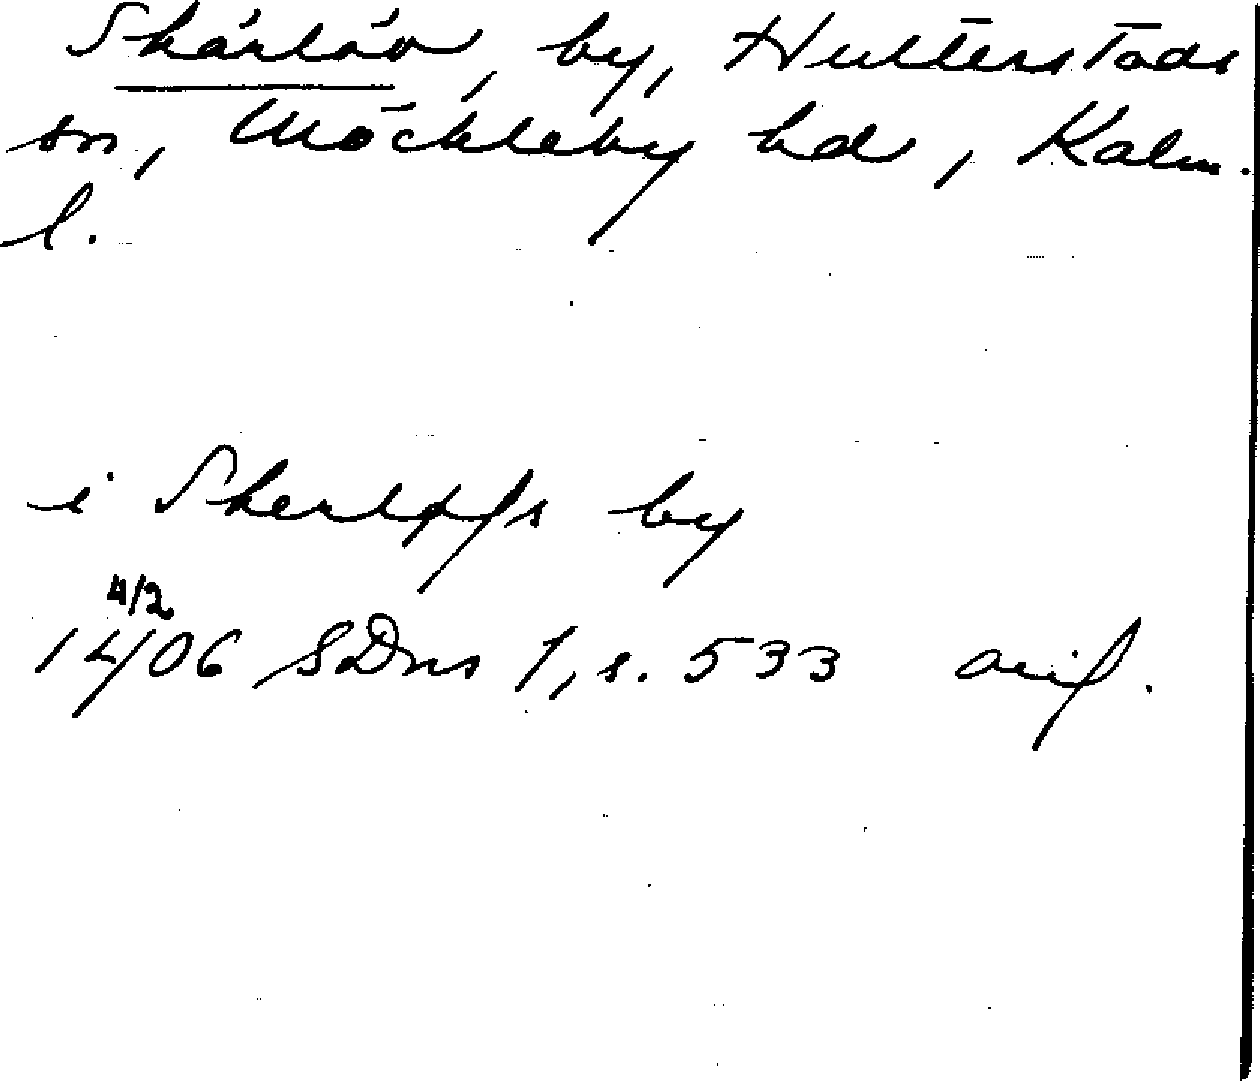 Skärlöv, by, Hulterstads
sn, Möckleby hd, Kalm.
l.
i Skerløfs by
4/2
1406 SDns 1, s. 533 avs.